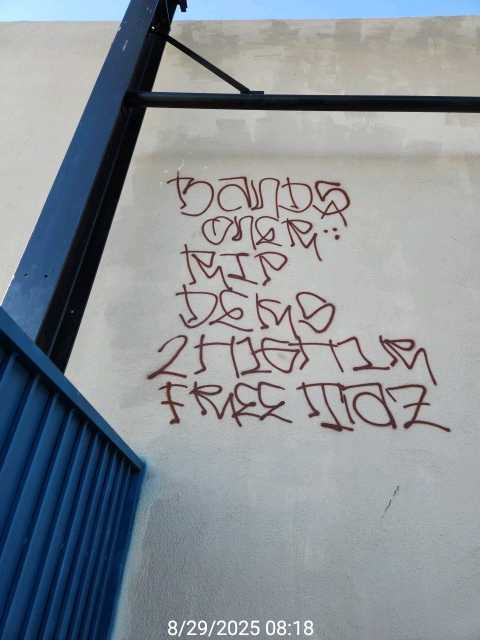 BANDS
ONER
RIP
DEKS
2 HIGHER
FREE TAZ
8/29/2025 08:18